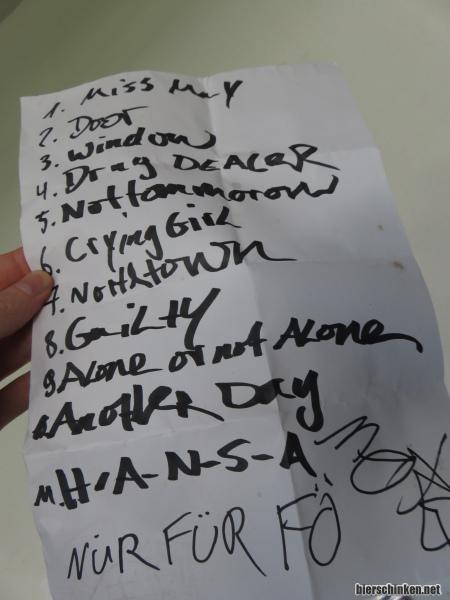 1. Miss May
2. Door
3. Window
4. Drug DEALER
5. Nottommorow
6. Crying Girl
7. Nothtown
8. GuiLTY
9 ALone or not ALone
Another Day
11. H-A-N-S-A
NÜR FÜR FÖ
bierschinken.net